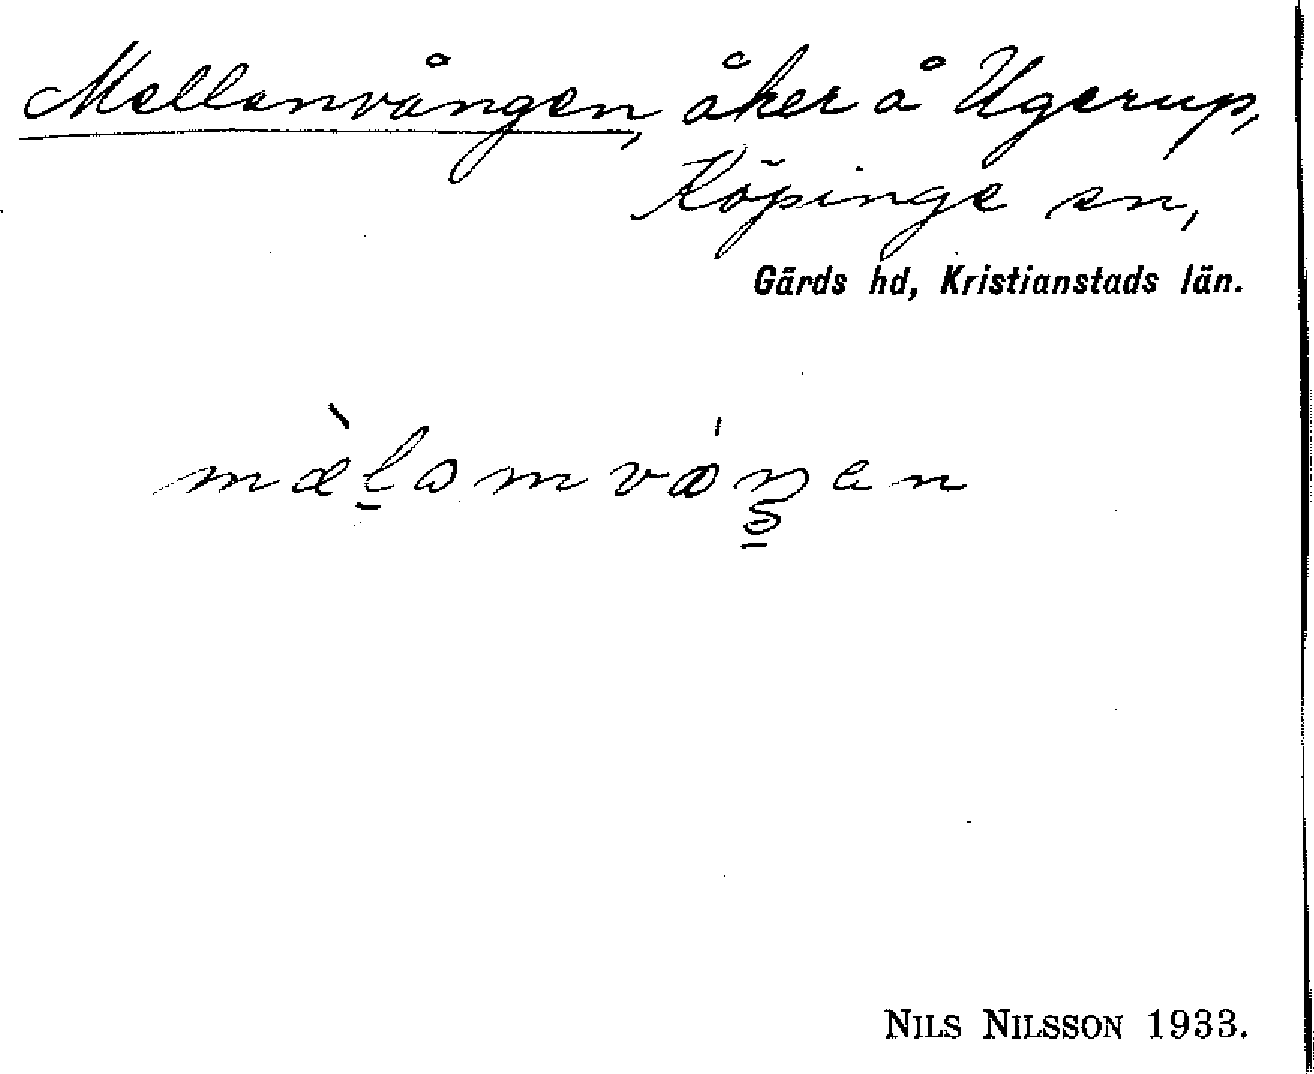 Mellanvången, åker å Ugerup,
Köpinge sn,
Gärds hd, Kristianstads län.
mæ̀l̲amvǻŋ̲en
NILS NILSSON 1933.